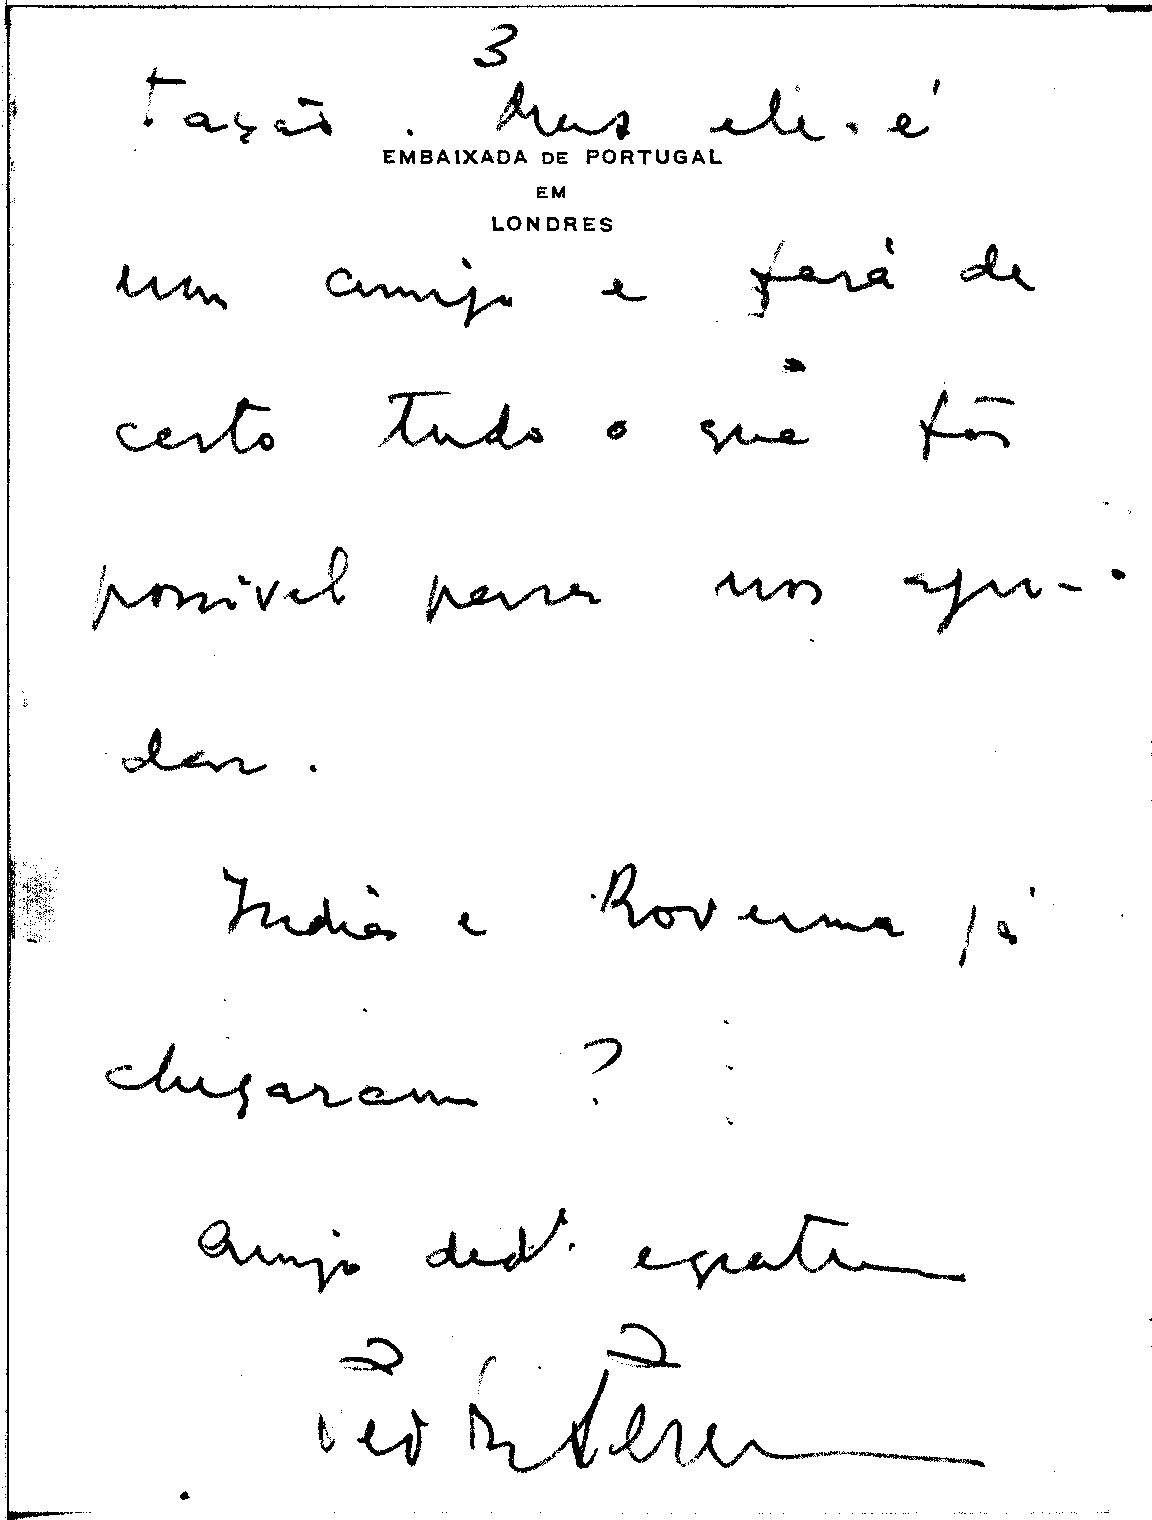 3
tação. Mas ele é
EMBAIXADA DE PORTUGAL
EM
LONDRES
um amigo e fará de
certo tudo o que fôr
possivel para nos aju-
dar.
India e Roverma já
chegaram?
Amigo ded.º e grato